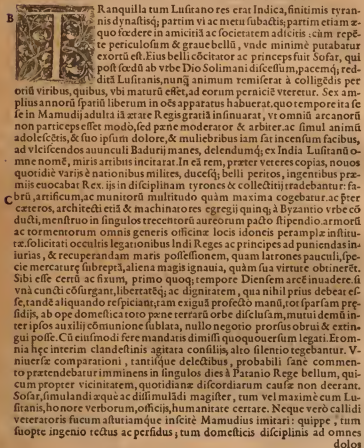 B
TRanquilla tum Lusitano res erat Indica, finitimis tyran-
nis dynastisq; partim vi ac metu subactis; partim etiam æ-
quo fœdere in amicitiã ac societatem adscitis: cùm repẽ-
te periculosum & graue bellũ, vnde minimè putabatur
exortũ est. Eius belli cõcitator ac princeps fuit Sofar, qui
post sedũ ab vrbe Dio Solimani discessum, pacemq; red-
ditã Lusitanis, nunq̃ animum remiserat à colligẽdis per
otiũ viribus, quibus, vbi maturũ esset, ad eorum perniciẽ vteretur. Sex am-
plius annorũ spatiũ liberum in oẽs apparatus habuerat. quo tempore ita se-
se in Mamudij adulta iã ætate Regis gratiã insinuarat, vt omniũ arcanorũ
non particeps esset modò, sed pæne moderator & arbiter. ac simul animũ
adolescẽtis, & suo ipsum dolore, & muliebribus iam satis incensum facibus,
ad vlciscendos auunculi Badurij manes, delendumq; ex India Lusitanũ o-
mne nomẽ, miris artibus incitarat. In eã rem, præter veteres copias, nouos
quotidie varijs è nationibus milites, ducesq; belli peritos, ingentibus præ-
mijs euocabat Rex. ijs in disciplinam tyrones & collectitij tradebantur: fa-
C
brũ, artificum, ac monitorũ multitudo quàm maxima cogebatur. ac p̃ter
cæteros, architecti etiã & machinatores egregij quinq; à Byzantio vrbe cõ
ducti, menstruo in singulos trecentorũ aureorum pacto stipendio. armorũ
ac tormentorum omnis generis officinæ locis idoneis peramplæ institu-
tæ. solicitati occultis legationibus Indi Reges ac principes ad puniendas in-
iurias, & recuperandam maris possessionem, quam latrones pauculi, spe-
cie mercaturę subreptã, aliena magis ignauia, quàm sua virtute obtinerẽt.
Sibi esse certũ ac fixum, primo quoq; tempore Diensem arcẽ inuadere. si
vnà cuncti cõsurgant, libertatẽq; ac dignitatem, qua nihil prius debeat es-
se, tandẽ aliquando respiciant; eam exiguã profectò manũ, tot sparsam præ-
sidijs, ab ope domestica toto pæne terrarũ orbe disclusam, mutui demũ in-
ter ipsos auxilij cõmunione sublata, nullo negotio prorsus obrui & extin-
gui posse. Cũ eiusmodi fere mandatis dimissi quoquouersum legati. Etom-
nia hęc interim clandestinis agitata consilijs, alto silentio tegebantur. V-
niuersæ comparationi, tantisque delectibus, probabili sanè commen-
to prætendebatur imminens in singulos dies à Patanio Rege bellum, qui-
cum propter vicinitatem, quotidianæ discordiarum causæ non deerant.
Sofar, simulandi æquè ac dissimulãdi magister, tum vel maximè cum Lu-
sitanis, honore verborum, officijs, humanitate certare. Neque verò callidi
veteratoris fucum astutiamque inscitè Mamudius imitari: quippe, tum
suopte ingenio tectus ac perfidus; tum domesticis disciplinis ad omnes
dolos